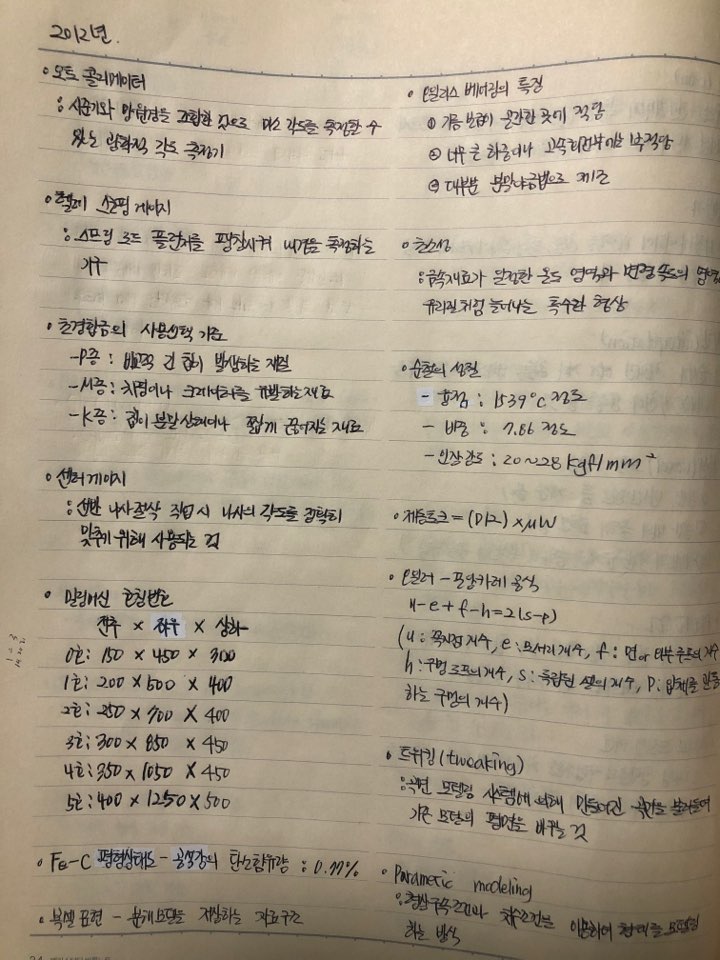 2012년.
• 오토 콜리메이터
: 시준기와 망원경을 조합한 것으로 미소 각도를 측정할 수
있는 광학적 각도 측정기
• 텔레스코핑 게이지
: 스프링 로드 플런저를 팽창시켜 내경을 측정하는
기구
• 초경합금의 사용선택 기준
- P종 : 비교적 긴 칩이 발생하는 재질
- M종 : 치평이나 크레이터를 유발하는 재료
- K종 : 칩이 분말상태이나 짧게 끊어지는 재료
• 센터 게이지
: 선반 나사절삭 작업 시 나사의 각도를 정확히
맞추기 위해 사용되는 것
• 밀링머신 호칭번호
전후 × 좌우 × 상하
0호: 150 × 450 × 300
1호: 200 × 500 × 400
2호: 250 × 700 × 400
3호: 300 × 850 × 450
4호: 350 × 1050 × 450
5호: 400 × 1250 × 500
• Fe-C 평형상태도 - 공석강의 탄소함유량 : 0.77%
• 복셀 표현 - 분해모델을 저장하는 자료구조
• 오일리스 베어링의 특징
① 기름 보급이 곤란한 곳에 적당
② 너무 큰 하중이나 고속회전부에는 부적당
③ 대부분 분말야금법으로 제조
• 초소성
: 금속재료가 일정한 온도 영역과 변형 속도의 영역
유리질처럼 늘어나는 특수한 현상
• 순철의 성질
- 융점 : 1539°C 정도
- 비중 : 7.86 정도
- 인장강도 : 20~28 kgf/mm²
• 제동토크 = (D/2) × μW
• 오일러 - 포앙카레 공식
u-e+f-h=2(s-p)
(u : 꼭지점 개수, e : 모서리 개수, f : 면 or 외부 루프의 개수
h : 구멍 루프의 개수, s : 독립된 셀의 개수, p : 입체를 관통
하는 구멍의 개수)
• 트위킹 (tweaking)
: 곡면 모델링 시스템에 의해 만들어진 곡면을 불러들여
기존 모델의 평면을 바꾸는 것
• Parametic modeling
: 형상구속조건과 치수조건을 이용하여 형태를 모델링
하는 방식